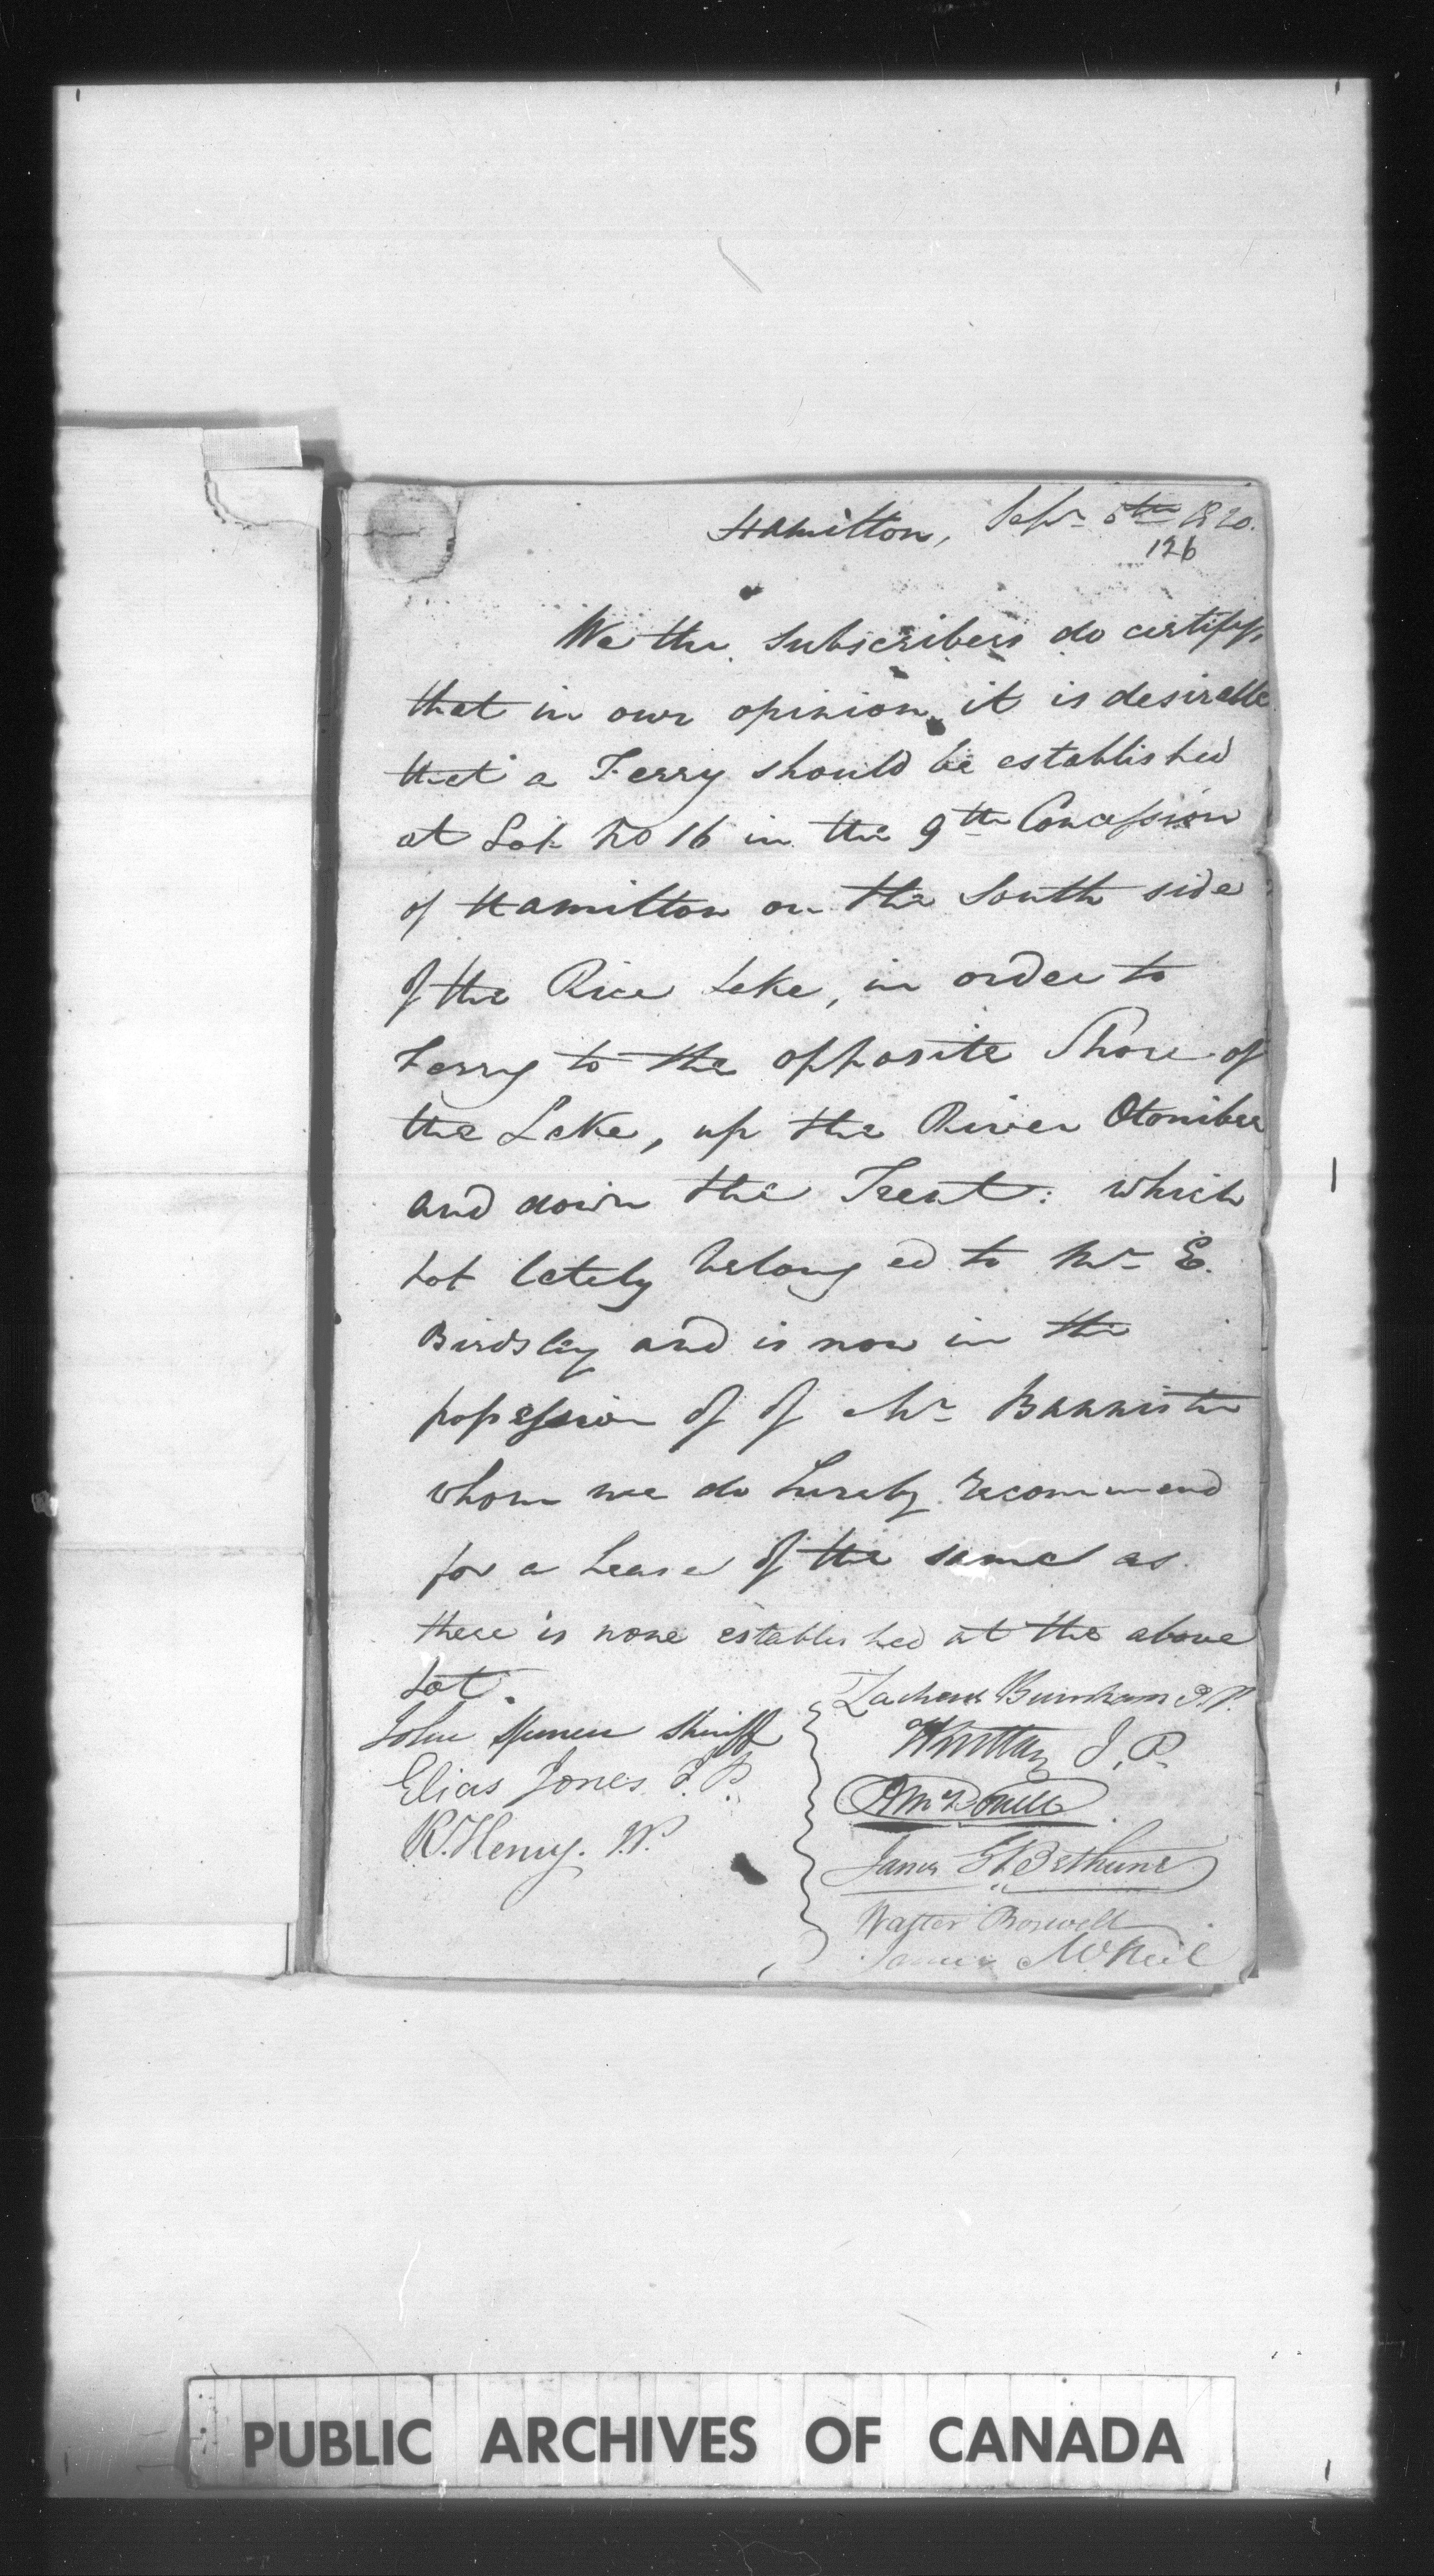 Hamilton, Septr 5th 1820.
126
We the Subscribers do certify,
that in our opinion it is desirable
that a Ferry should be established
at Lot No 16 in the 9th Concession
of Hamilton on the South side
of the Rice Lake, in order to
Ferry to the opposite Shore of
the Lake, up the River Otonibee
and down the Trent: which
Lot lately belonged to Mr E.
Birdsley and is now in the
possession of of Mr Bannister
whom we do hereby recommend
for a Lease of the same as
there is none established at the above
Lot.
John Spencer Sheriff
Elias Jones J.P.
R. Henry. J.P.
Zacheus Burnham J.P.
J.P.
A McDonell
James G. Bethune
Walter Boswell
James McNeil
PUBLIC ARCHIVES OF CANADA